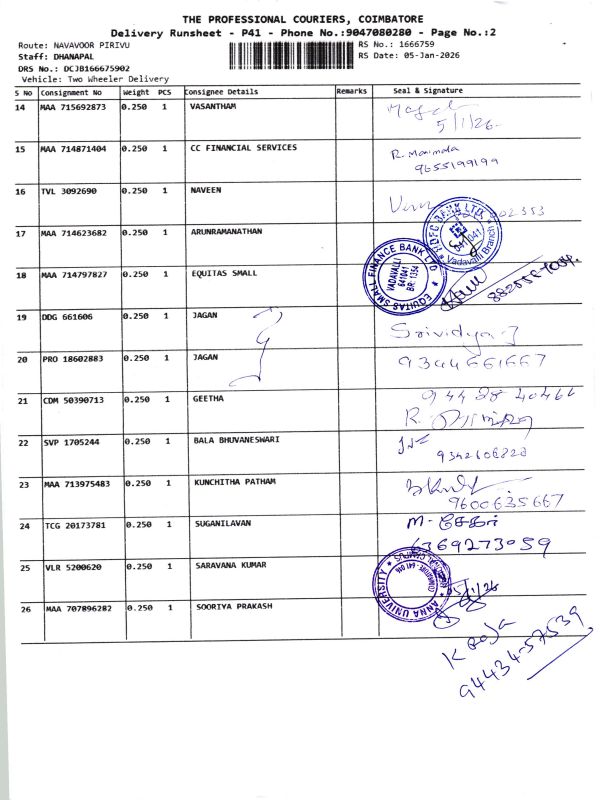 THE PROFESSIONAL COURIERS, COIMBATORE
Delivery Runsheet - P41 - Phone No.:9047080280 - Page No.:2
Route: NAVAVOOR PIRIVU
RS No.: 1666759
Staff: DHANAPAL
RS Date: 05-Jan-2026
DRS No.: DCJB166675902
Vehicle: Two Wheeler Delivery
S No Consignment No Weight PCS Consignee Details Remarks Seal & Signature
14 MAA 715692873 0.250 1 VASANTHAM
5/1/26
15 MAA 714871404 0.250 1 CC FINANCIAL SERVICES
R. Manimala
9655199199
16 TVL 3092690 0.250 1 NAVEEN
HDFC BANK LTD.
641 041
Vadavalli Branch
17 MAA 714623682 0.250 1 ARUNRAMANATHAN
18 MAA 714797827 0.250 1 EQUITAS SMALL
EQUITAS SMALL FINANCE BANK LTD
VADAVALLI
641041
BR: 1354
19 DDG 661606 0.250 1 JAGAN
Srividya J
20 PRO 18602883 0.250 1 JAGAN
9344661667
21 CDM 50390713 0.250 1 GEETHA
R.
22 SVP 1705244 0.250 1 BALA BHUVANESWARI
23 MAA 713975483 0.250 1 KUNCHITHA PATHAM
9600635667
24 TCG 20173781 0.250 1 SUGANILAVAN
M. சேகர்
6369273059
25 VLR 5200620 0.250 1 SARAVANA KUMAR
ANNA UNIVERSITY
05/1/26
26 MAA 707896282 0.250 1 SOORIYA PRAKASH
K Raja
94434-57539